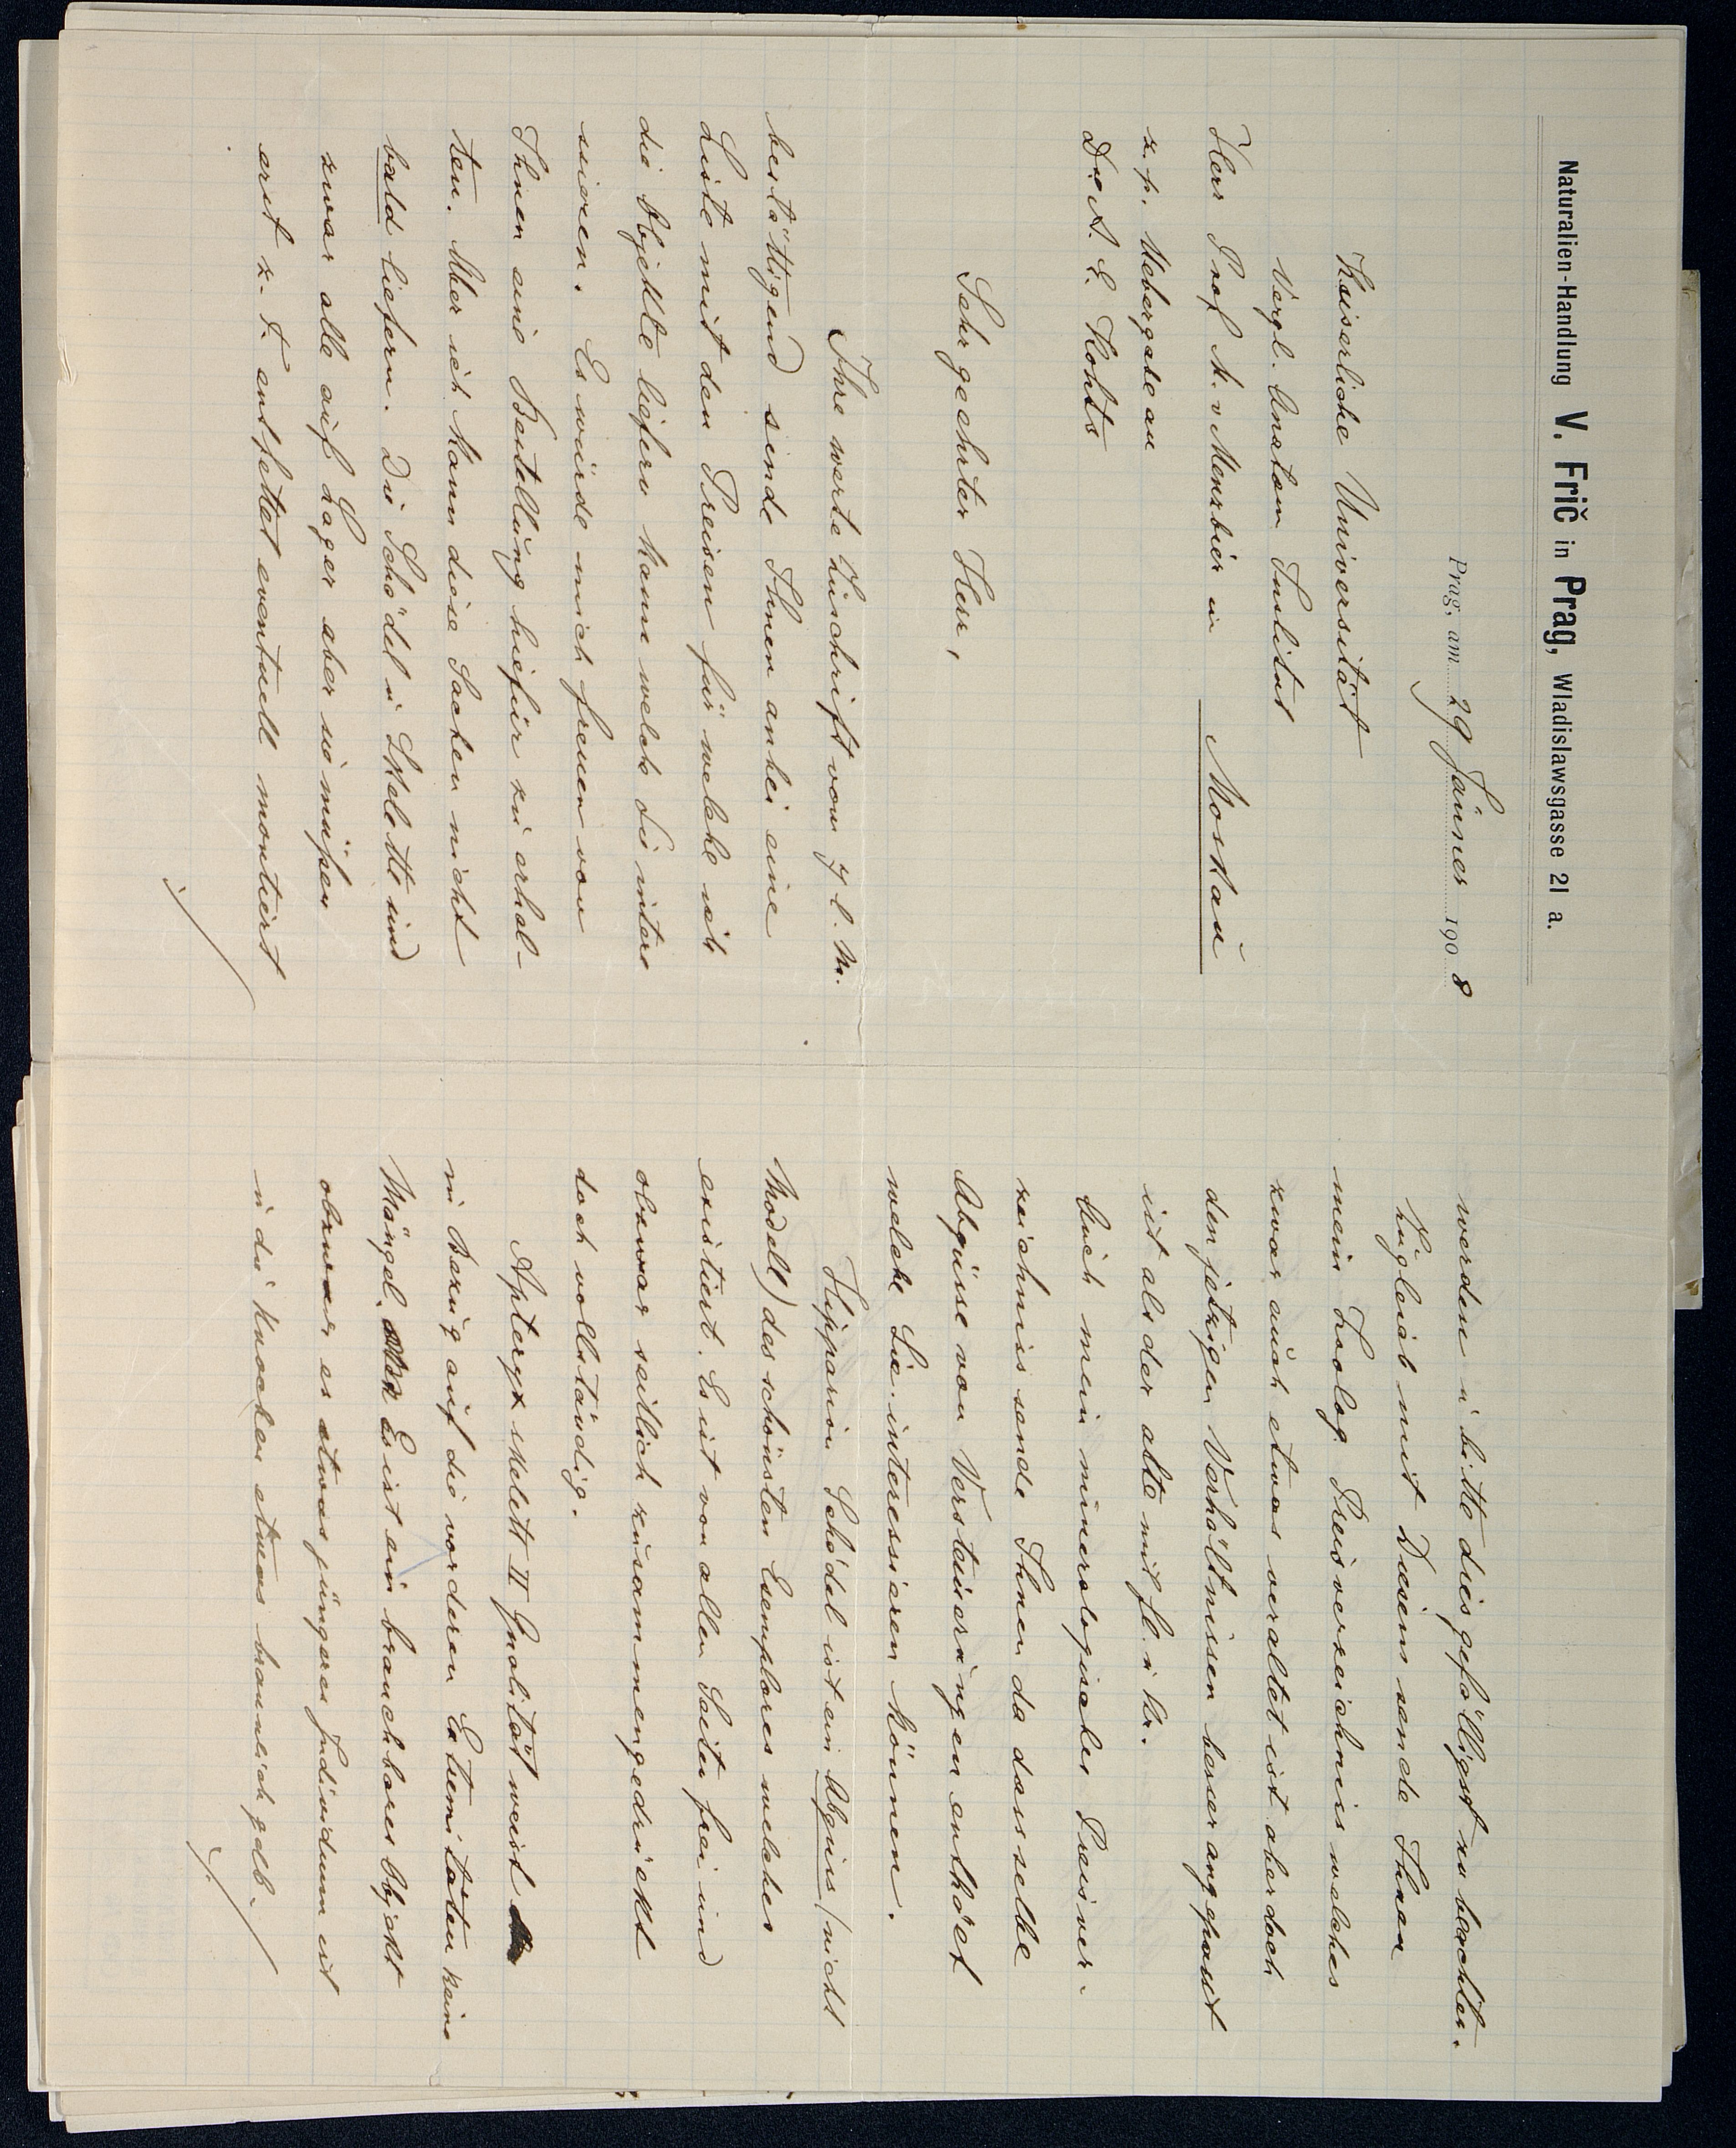 Naturalien-Handlung V. Frič in Prag, Wladislawsgasse 21 a.
Prag, am 29 Jänner 1908
Kaiserliche Universität
Vergl. Anatom Institut
Herr Prof M. v Menzbier in Moskau
z. h. Uebergabe an
Dr A. E. Kohts
Sehr geehrter Herr,
Ihre werte Zuschrift vom 7 l. M.
bestättigend sende Ihnen anbei eine
Liste mit den Preisen für welche ich
die Objekte liefern kann welche Sie interes
sieren. Es würde mich freuen von
Ihnen eine Bestellung hiefür zu erhal-
ten. Aber ich kann diese Sachen nicht
bald liefern. Die Schädel u Skelette sind
zwar alle auf Lager aber sie müssen
erst z. T. entfettet eventuell montiert
./
werden u bitte dies gefälligst zu beachten.
Zugleich mit Diesem sende Ihnen
mein Zoolog. Preisverzeichnis welches
zwar auch etwas veraltet ist aber doch
den jetzigen Verhältnissen besser angepasst
ist als der alte mit fl. u kr.
Auch mein mineralogisches Preisver-
zeichnis sende Ihnen da dasselbe
Abgüsse von Versteinerungen enthält
welche Sie interessieren können.
Hipparion Schädel ist ein Abguss (nicht
Modell) des schönsten Exemplares welches
existiert. Es ist von allen Seiten frei und
obzwar seitlich zusammengedrückt
doch vollständig.
Apteryx skelett II Qualität weist
in Bezug auf die vorderen Extremitäten keine
Mängel. Es ist ein brauchbares Objekt
obzwar es etwas jüngeres Individuum ist
u die Knochen etwas braunlich gelb.
./